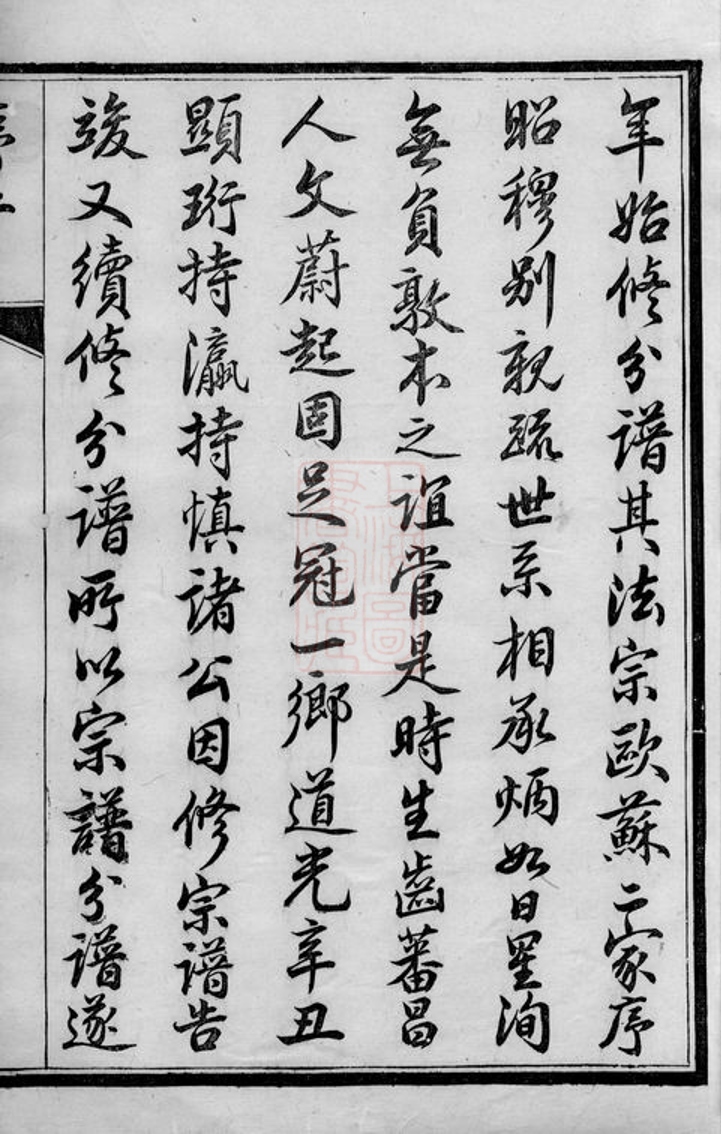 年始修分譜其法宗歐蘇二家序
昭穆別親疏世系相承炳如日星洵
無負敦本之誼當是時生齒蕃昌
人文蔚起固足冠一鄉道光辛丑
顯珩持瀛持慎諸公因修宗譜告
竣又續修分譜所以宗譜分譜遂